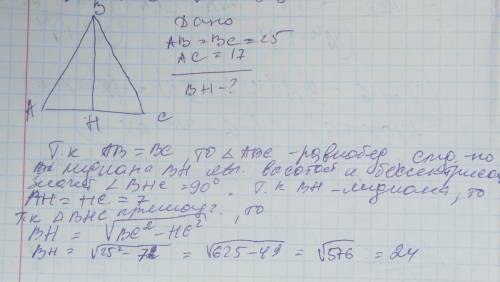 B
Дано
AB = BC = 25
AC = 17
BH - ?
A
H
C
Т.к AB = BC, то △ ABC - равнобед,
медиана BH явл. высотой и бессектриса
значит ∠ BHC = 90°. Т.к BH - медиана, то
AH = HC = 7
Т.к △ BHC прямоуг., то
BH = √BC² - HC²
BH = √25² - 7² = √625 - 49 = √576 = 24